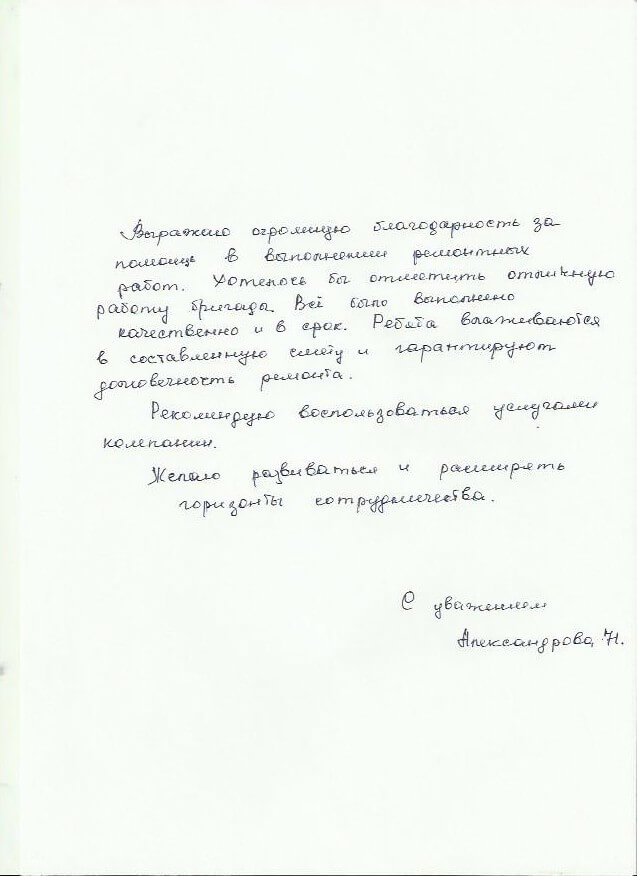 Выражаю огромную благодарность за
помощь в выполнении ремонтных
работ. Хотелось бы отметить отличную
работу бригады. Всё было выполнено
качественно и в срок. Ребята влаживаются
в составленную смету и гарантируют
долговечность ремонта.
Рекомендую воспользоваться услугами
компании.
Желаю развиваться и расширять
горизонты сотрудничества.
С уважением
Александрова Н.